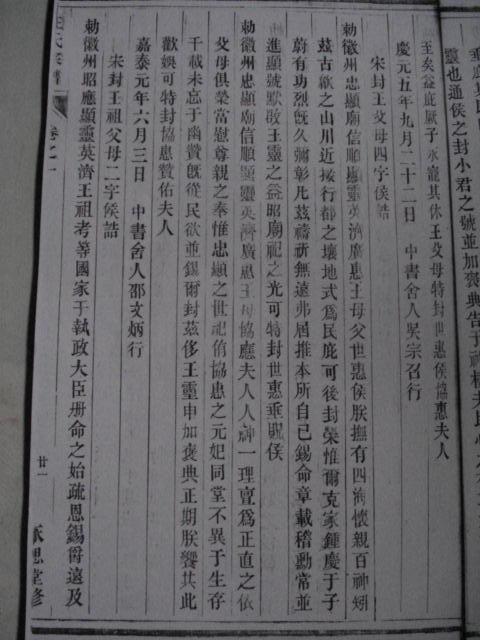 靈也通侯之封小君之號並加褒典告于神
至矣益庇厥子永寵其休王父母特封世惠侯協惠夫人
慶元五年九月二十二日　中書舍人吳宗召行
宋封王父母四字侯誥
勅徽州忠顯廟信順顯靈英濟廣惠王母父世惠侯朕撫有四海懷親百神矧
茲古歙之山川近接行都之壤地式為民庇可後封榮惟爾克家鍾慶于子
蔚有功烈既久彌彰凡茲禱祈無遠弗屆推本所自已錫命章載稽勳常並
進顯號歆王靈之益昭廟祀之光可特封世惠垂貺侯
勅徽州忠顯廟信順顯靈英濟廣惠王母協應夫人人神一理亶為正直之依
父母俱榮當慰尊親之奉惟忠顯之世祀侑協惠之元妃同堂不異于生存
千載未忘于幽贊既從民欲並錫爾封茲侈王靈申加褒典正期朕饗其此
歡娛可特封協惠贊佑夫人
嘉泰元年六月三日　中書舍人邵文炳行
宋封王祖父母二字侯誥
勅徽州昭應顯靈英濟王祖考等國家于執政大臣冊命之始疏恩錫爵遠及
氏宗譜
卷之一
廿一
思堂修